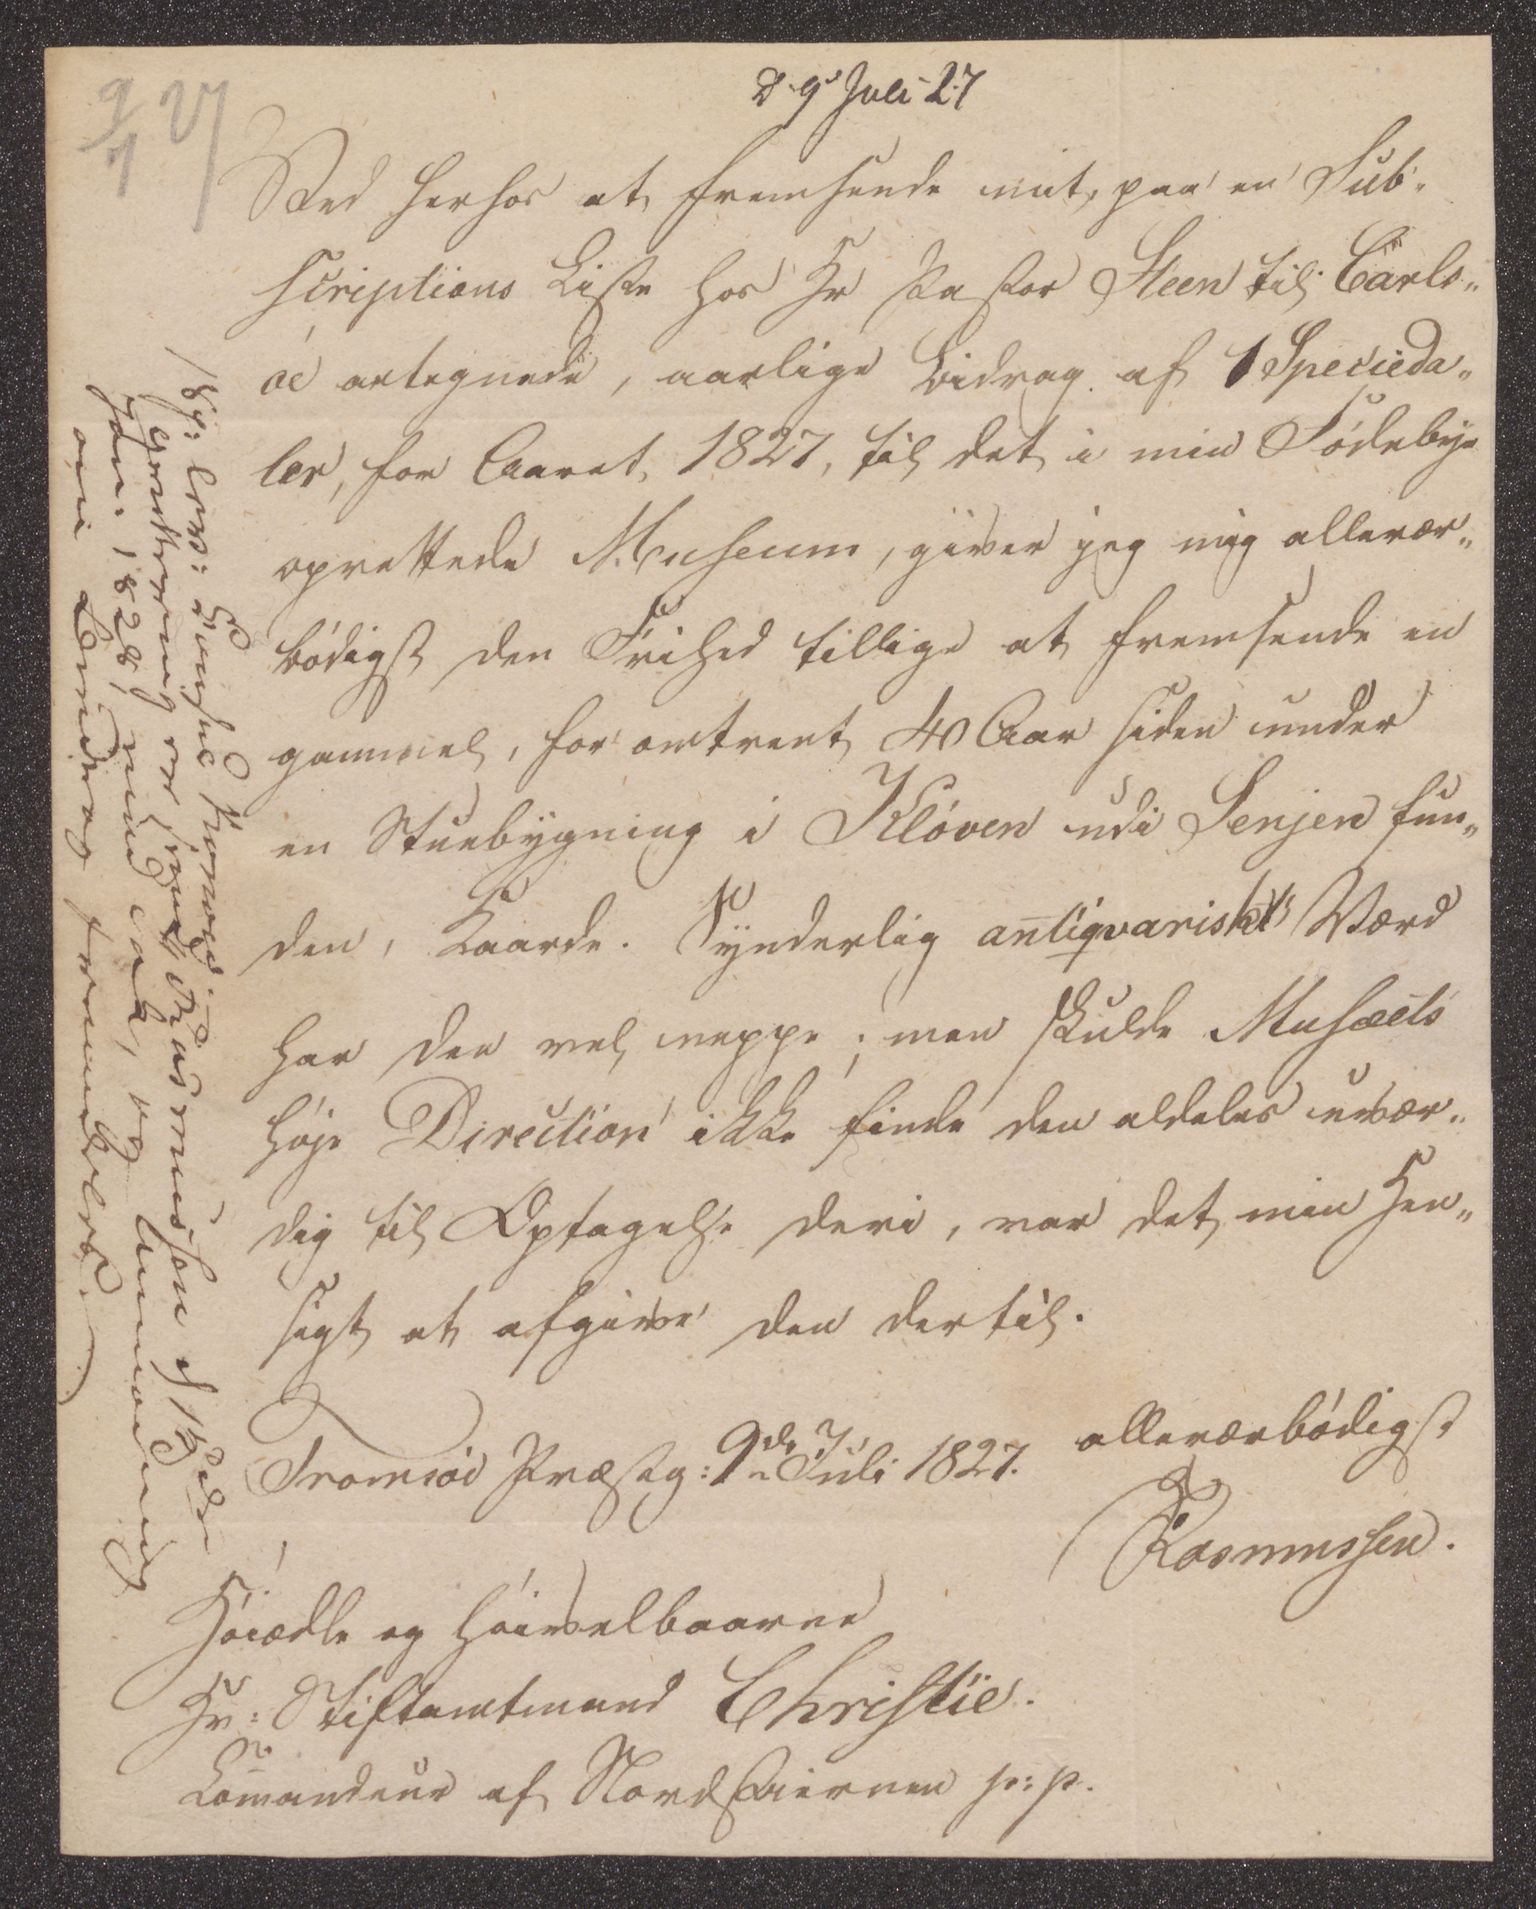 9/7 27
d. 9' Juli 27
Ved herhos at fremsende mit, paa en Sub-
scriptions Liste hos Hr Pastor Steen til Carls-
öe antegnede, aarlige Bidrag af 1 Specieda-
ler, for Aaret 1827, til det i min Födebye
oprettede Museum, giver jeg mig allerær-
bödigst den Frihed tillige at fremsende en
gammel, for omtrent 40 Aar siden under
en Stuebygning i Klöven udi Senjen fun-
den, Kaarde. Synderlig antiqvariskt Værd
har den vel neppe; men skulde Musæets
höje Direction ikke finde den aldeles uvær-
dig til Optagelse deri, var det min Hen-
sigt at afgive den dertil.
Tromsöe Præstg: 9de Juli 1827.
allerærbödigst
Rasmussen.
Höiædle og Höivelbaarne
Hr: Stiftamtmand Christie.
Comandeur af Nordstiernen p: p.
Qvittering er sendt Rasmussen
Jan: 1828, med Tak, og Anmodning
om Bidrag fremdeles.